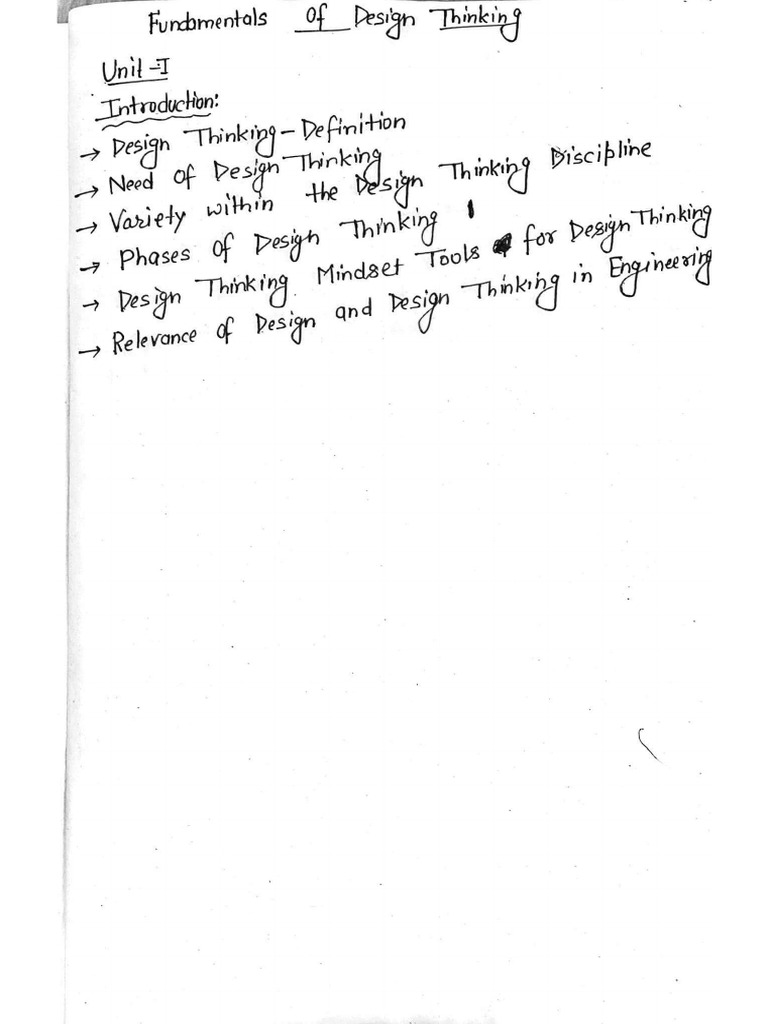 Fundamentals Of Design Thinking
Unit-I
Introduction:
→ Design Thinking - Definition
→ Need of Design Thinking
→ Variety within the Design Thinking Discipline
→ Phases of Design Thinking
→ Design Thinking Mindset Tools for Design Thinking
→ Relevance of Design and Design Thinking in Engineering